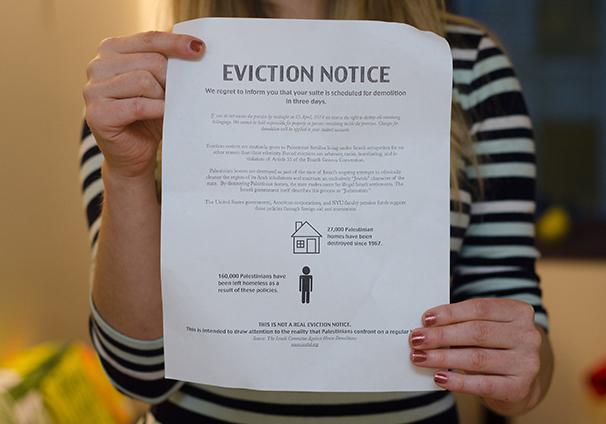 EVICTION NOTICE
We regret to inform you that your suite is scheduled for demolition
in three days.
If you do not vacate the premise by midnight on 25 April, 2014 we reserve the right to destroy all remaining
belongings. We cannot be held responsible for property or persons remaining inside the premises. Charges for
demolition will be applied to your student accounts.
Eviction notices are routinely given to Palestinian families living under Israeli occupation for no
other reason than their ethnicity. Forced evictions are arbitrary, racist, humiliating, and in
violation of Article 53 of the Fourth Geneva Convention.
Palestinian homes are destroyed as part of the state of Israel's ongoing attempts to ethnically
cleanse the region of its Arab inhabitants and maintain an exclusively "Jewish" character of the
state. By destroying Palestinian homes, the state makes room for illegal Israeli settlements. The
Israeli government itself describes this process as "Judaization."
The United States government, American corporations, and NYU faculty pension funds support
these policies through foreign aid and investments.
27,000 Palestinian
homes have been
destroyed since 1967.
160,000 Palestinians have
been left homeless as a
result of these policies.
THIS IS NOT A REAL EVICTION NOTICE.
This is intended to draw attention to the reality that Palestinians confront on a regular
Source: The Israeli Committee Against House Demolitions
www.icahd.org